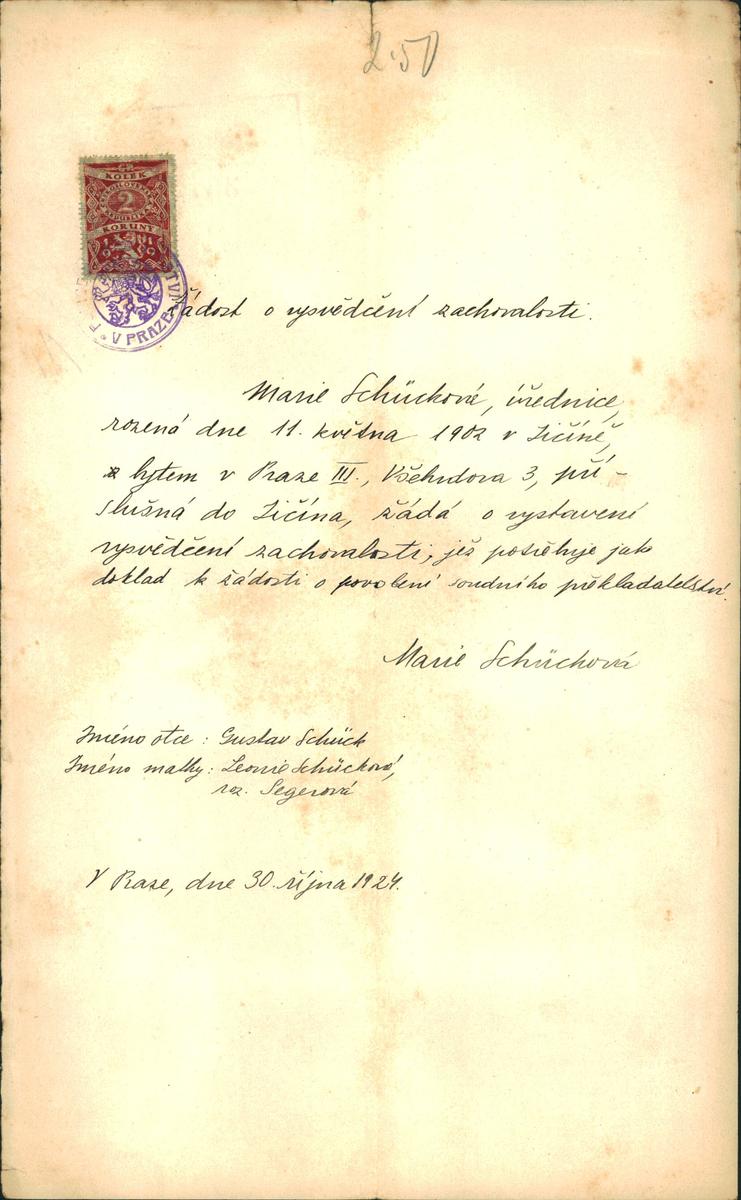 2·50
ČP.
KOLEK
ČESKOSLOVENSKÁ
2
REPUBLIKA
KORUNY
1919
V PRAZE
Žádost o vysvědčení zachovalosti.
Marie Schücková, úřednice,
rozená dne 11. května 1902 v Jičíně,
bytem v Praze III., Všehrdova 3, pří-
slušná do Jičína, žádá o vystavení
vysvědčení zachovalosti, jež potřebuje jako
doklad k žádosti o povolení soudního překladatelství.
Marie Schücková
Jméno otce : Gustav Schück
Jméno matky : Leonie Schücková,
roz. Segerová
V Praze, dne 30. října 1924.